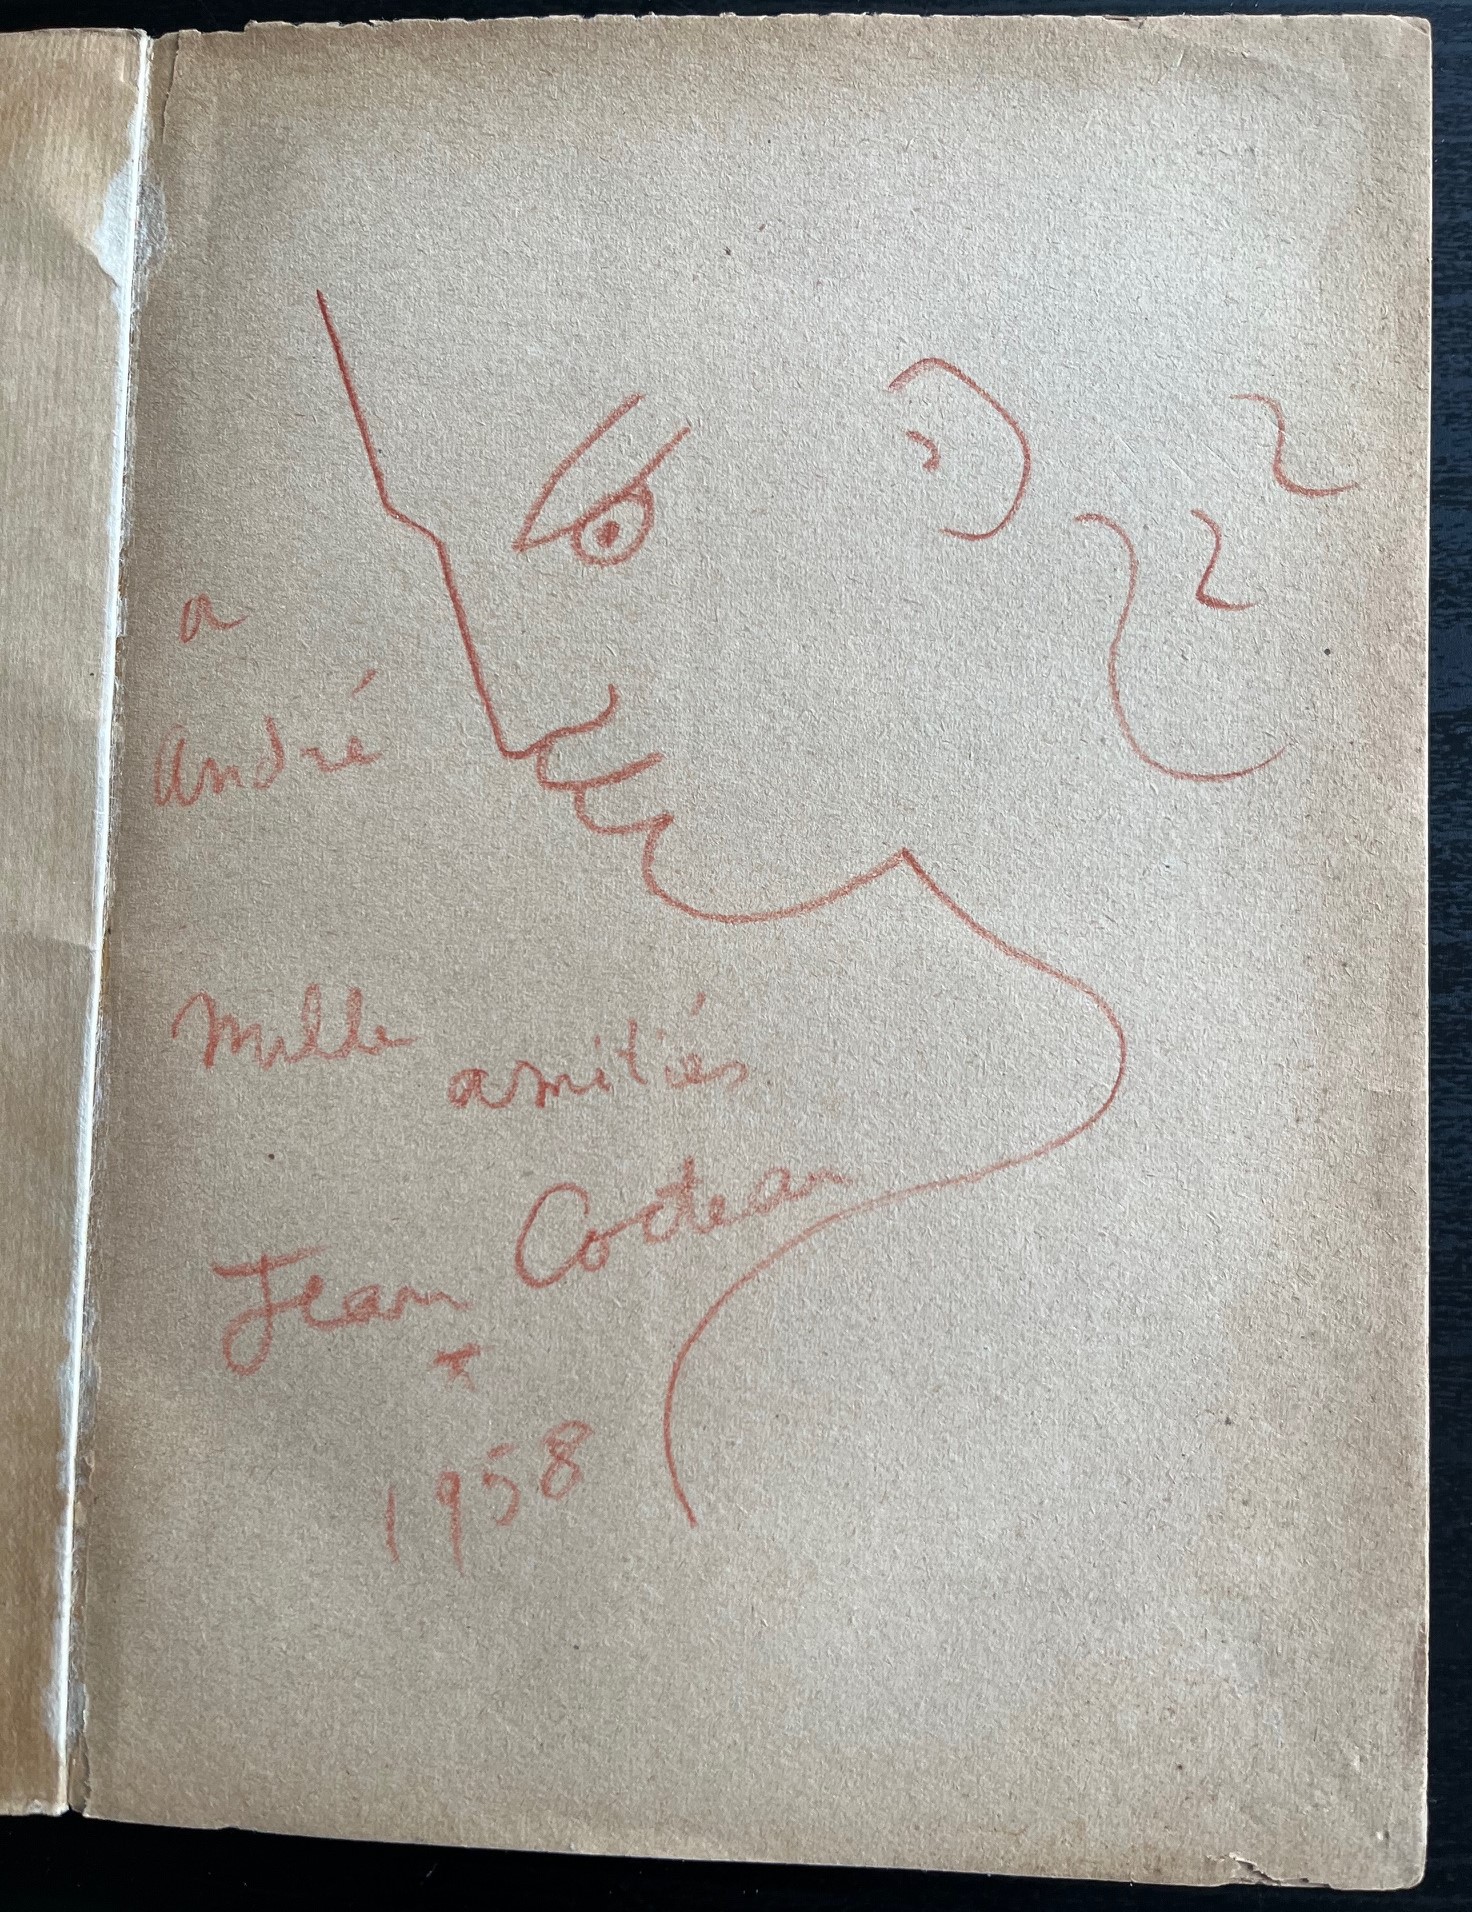 a
André
Mille amitiés
Jean Cocteau
1958